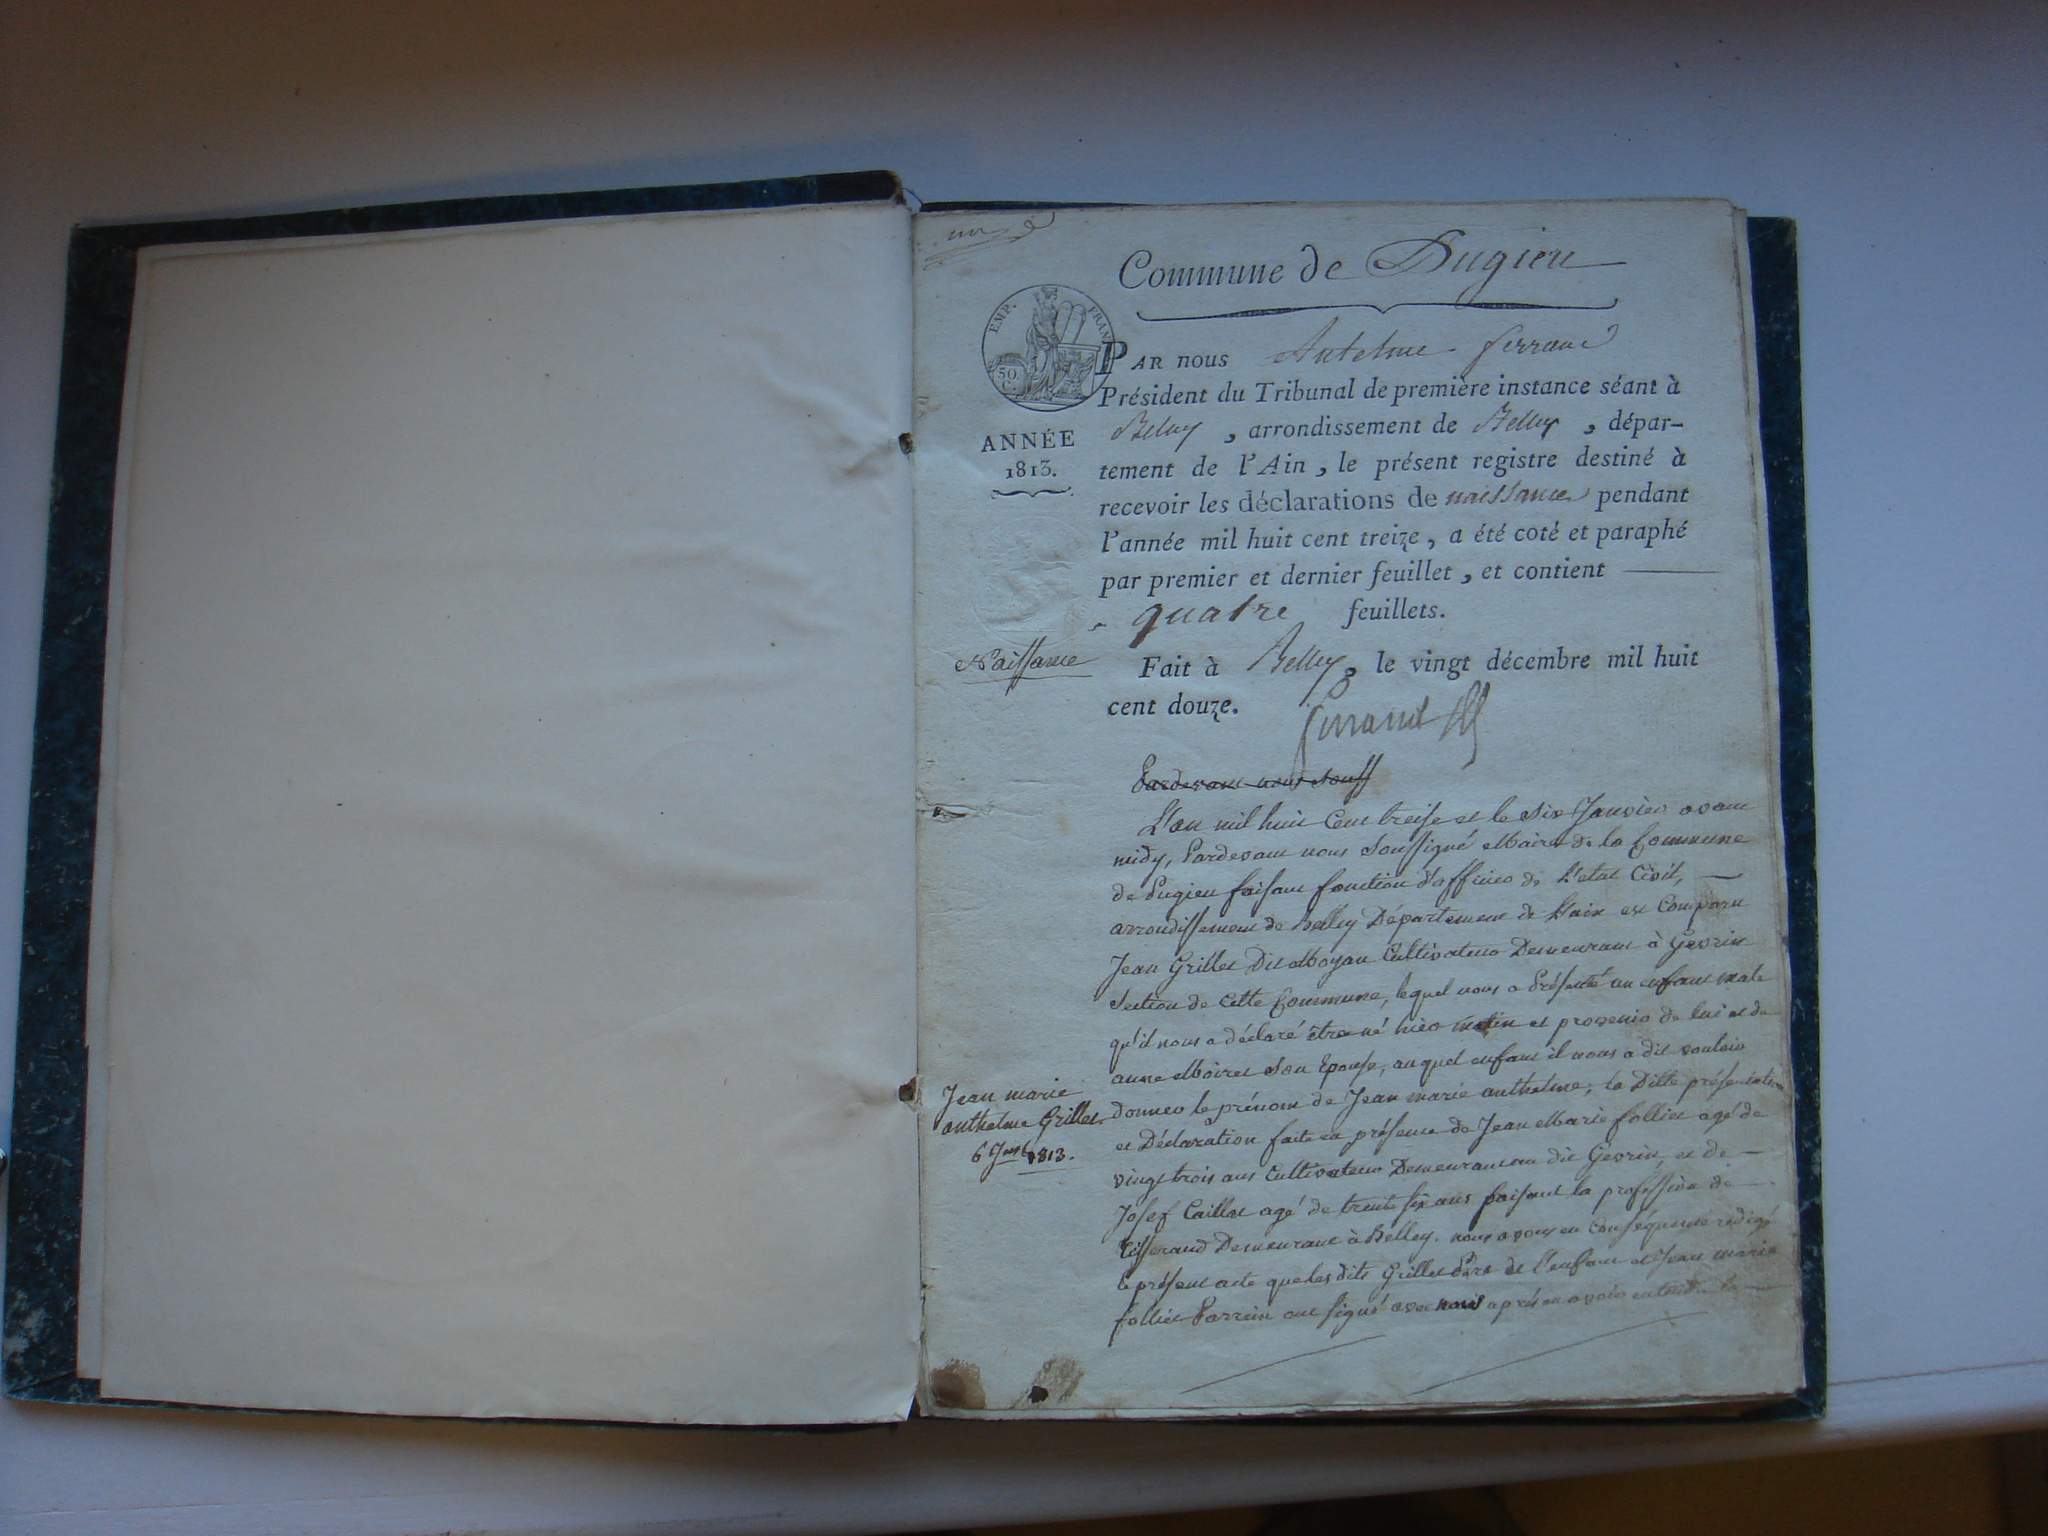 un
Commune de Pugieu
EMP. FRAN
50
C.
PAR nous Antelme ferrand
Président du Tribunal de première instance séant à
Belley, arrondissement de Belley, dépar-
ANNÉE
1813.
tement de l'Ain, le présent registre destiné à
recevoir les déclarations de naissance pendant
l'année mil huit cent treize, a été coté et paraphé
par premier et dernier feuillet, et contient
quatre feuillets.
Naissance
Fait à Belley, le vingt décembre mil huit
cent douze.
ferrand
Pardevant nous Souss
L'an mil huit Cent treise et le six Janvier avant
midy, Pardevant nous Soussigné Maire de la Commune
de Pugieu faisant fonction d'officier de L'etat Civil,
arrondissement de Belley Département de L'ain est Comparu
Jean Grillet Dit Moyan Cultivateur Demeurant à Gevrin
Section de Cette Commune, lequel nous a Présenté un enfant male
qu'il nous a déclaré être né hier matin et provenir de lui et de
anne Moiret Son Epouse, auquel enfant il nous a dit vouloir
Jean marie
anthelme Grillet
6 Janv 1813.
donner le prénom de Jean marie anthelme; la Ditte présentation
et Déclaration faite en présence de Jean Marie folliet agé de
vingt trois ans Cultivateur Demeurant au dit Gevrin, et de
Josef Caillat agé de trente six ans faisant la profession de
Tisserand Demeurant à Belley. nous avons en Conséquence redigé
le présent acte que les dits Grillet Père de l'enfant et Jean marie
folliet Parrein ont signé avec nous après en avoir entendu la